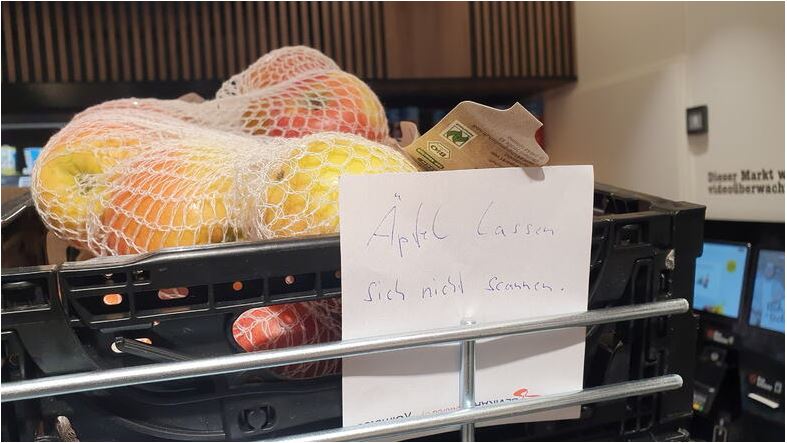 BIO
Äpfel lassen
sich nicht scannen.
Dieser Markt w
videoüberwach